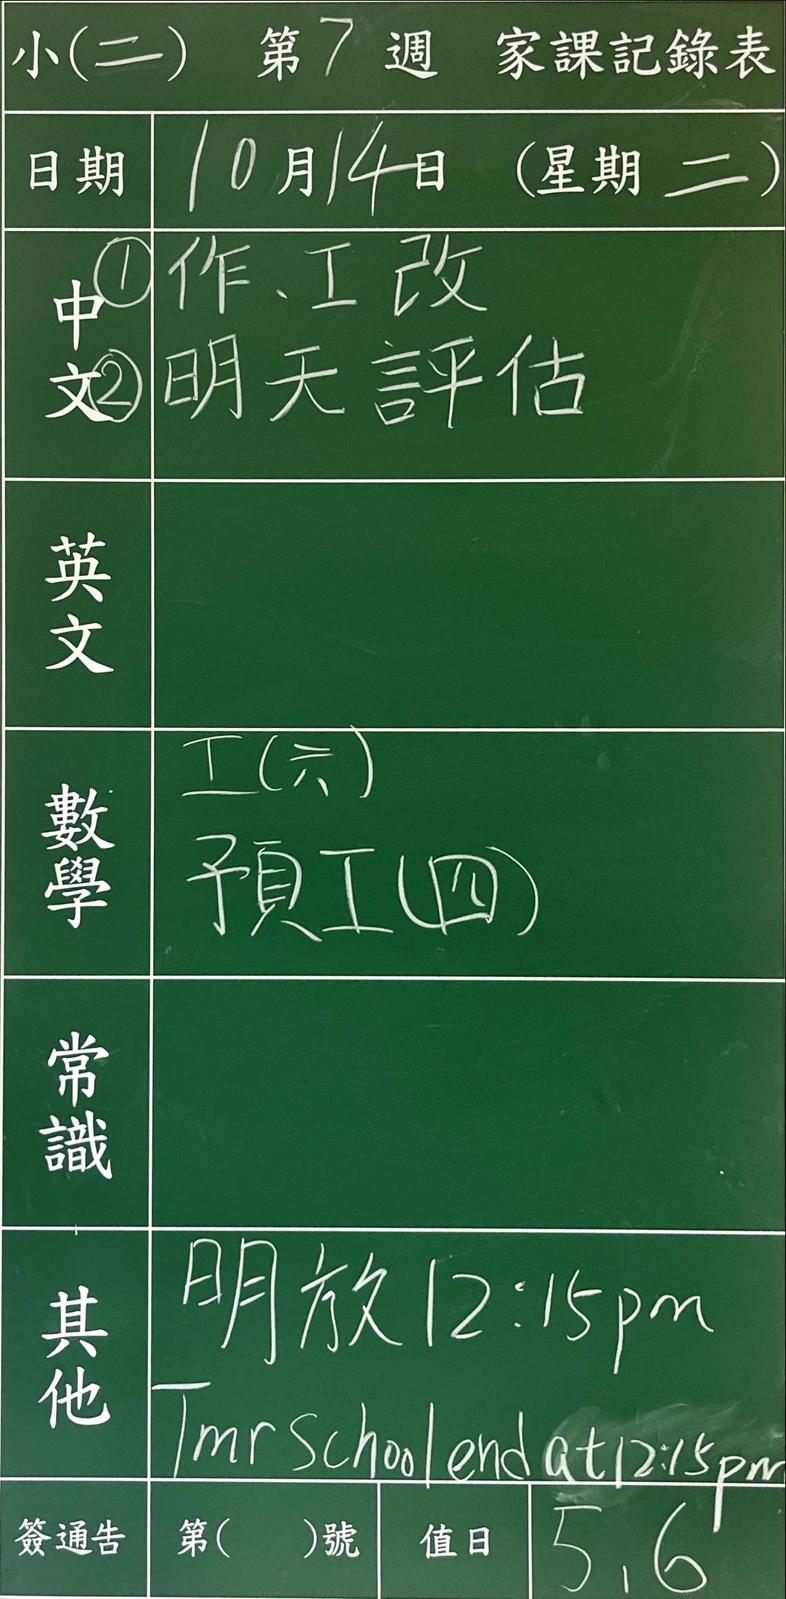 小(二) 第7週 家課記錄表
日期 10月14日 (星期二)
中文
①作、工改
②明天評估
英文
數學
工(六)
預工(四)
常識
其他
明放12:15pm
Tmr school end at 12:15pm
簽通告 第( )號 值日 5,6